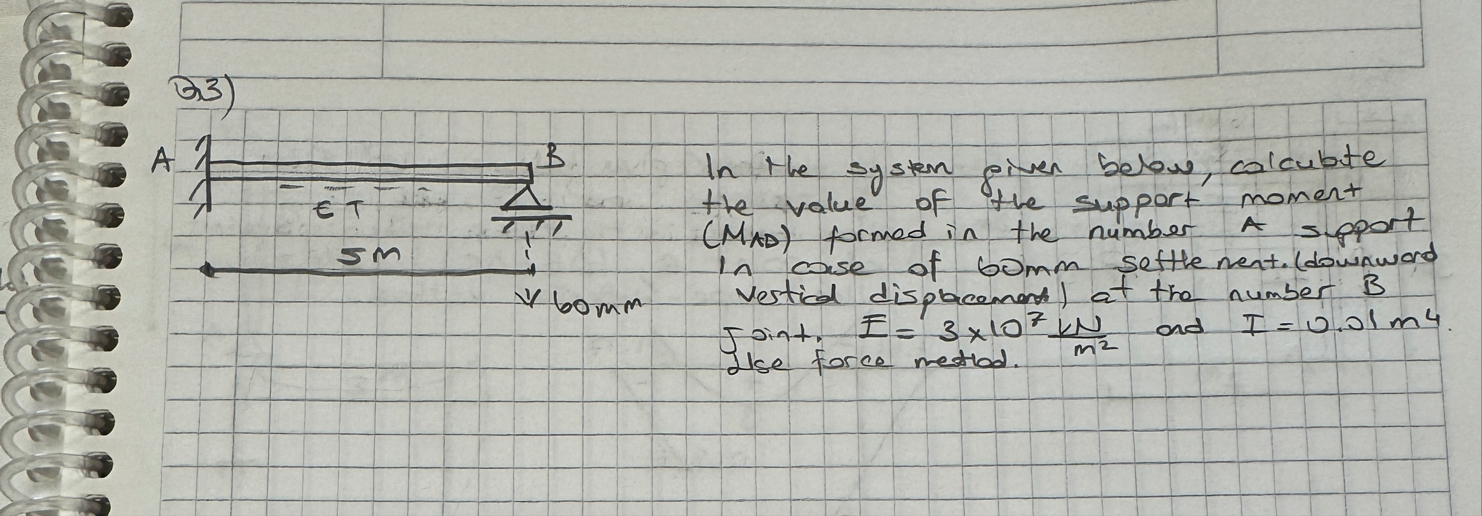 Q3)
A
B
E I
5m
60mm
In the system given below, calculate
the value of the support moment
(MAB) formed in the number A support
In case of 60mm settlement. (downward
vertical displacement) at the number B
Joint. E = 3x10⁷ kN/m² and I = 0.01 m⁴.
Use force method.